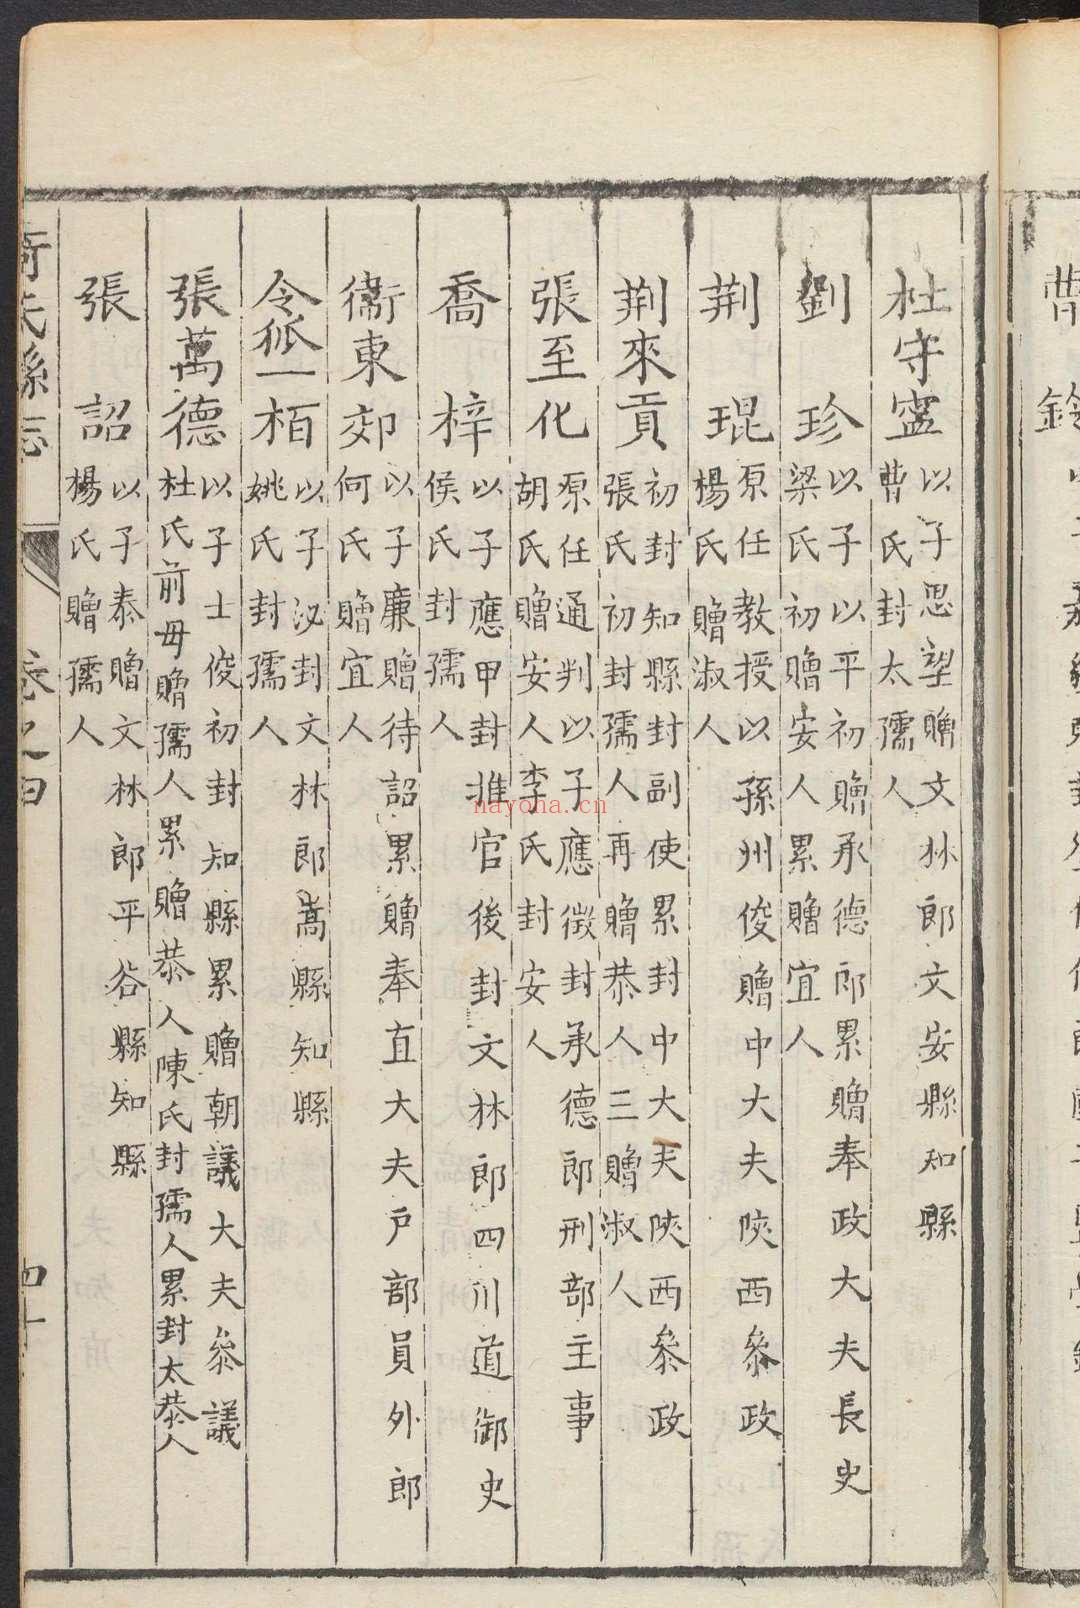 杜守寍以子思望贈文林郎文安縣知縣
曹氏封太孺人
劉珍以子以平初贈承德郎累贈奉政大夫長史
梁氏初贈安人累贈宜人
荆琨原任教授以孫州俊贈中大夫陝西叅政
楊氏贈淑人
荆來貢初封知縣封副使累封中大夫陝西叅政
張氏初封孺人再贈恭人三贈淑人
張至化原任通判以子應徵封承德郎刑部主事
胡氏贈安人李氏封安人
喬梓以子應甲封推官後封文林郎四川道御史
侯氏封孺人
衞東郊以子廉贈待詔累贈奉直大夫戸部員外郎
何氏贈宜人
令狐一栢以子泌封文林郎嵩縣知縣
姚氏封孺人
張萬德以子士俊初封知縣累贈朝議大夫叅議
杜氏前毋贈孺人累贈恭人陳氏封孺人累封太恭人
張詔以子泰贈文林郎平谷縣知縣
楊氏贈孺人
氏縣志
卷之四
四十
nayona.cn